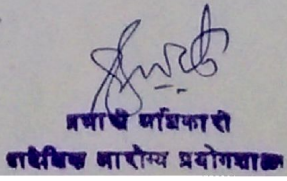 प्रभारी अधिकारी
प्रादेशिक आरोग्य प्रयोगशाळा